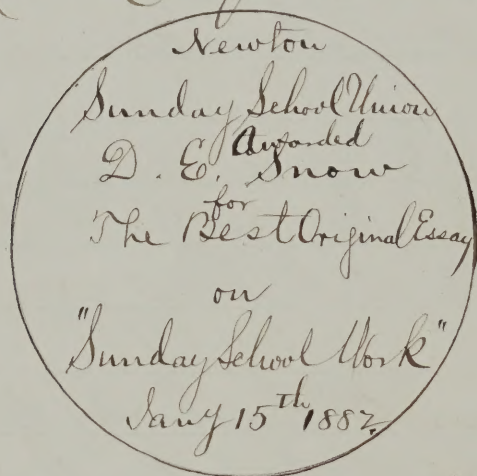 Newton
Sunday School Union
Awarded
D. E. Snow
for
The Best Original Essay
on
"Sunday School Work"
Jany 15th 1882.